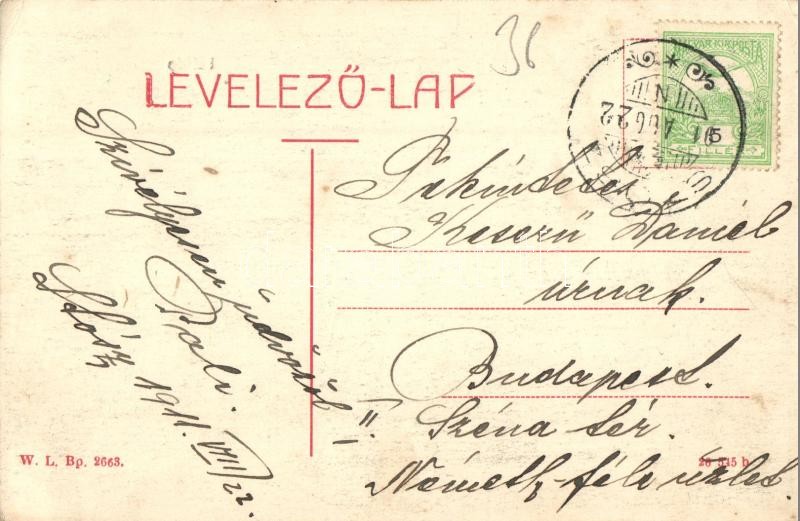 36
LEVELEZŐ-LAP
MAGYAR KIR. POSTA
5
FILLÉR
911 AUG 22
N
Szívélyesen üdvözöl
Pali.
Stósz 1911. VIII/22.
Tekintetes
Keserű Dániel
úrnak.
Budapest.
II. Széna tér.
Németh-féle üzlet.
W. L. Bp. 2663.